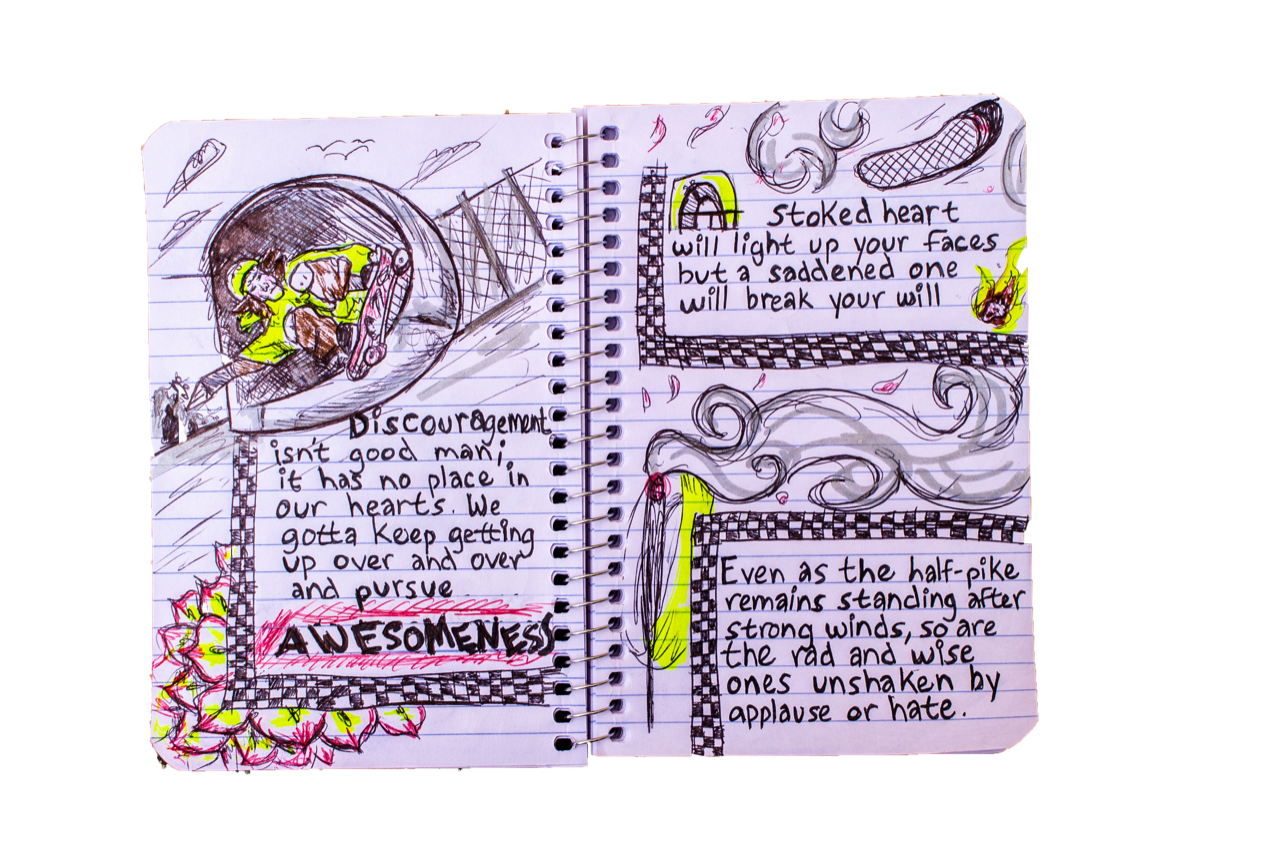 Discouragement
isn't good man;
it has no place in
our hearts. We
gotta keep getting
up over and over
and pursue
AWESOMENESS
A Stoked heart
will light up your faces
but a saddened one
will break your will
Even as the half-pike
remains standing after
strong winds, so are
the rad and wise
ones unshaken by
applause or hate.